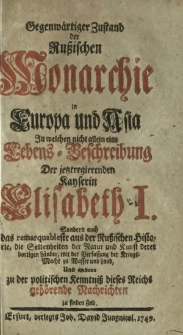 Gegenwärtiger Zustand
der
Rußischen
Monarchie
in
Europa und Asia
In welchen nicht allein eine
Lebens-Beschreibung
Der jetztregierenden
Kayserin
Elisabeth I.
Sondern auch
das remarquableste aus der Rußischen Histo-
rie, die Seltenheiten der Natur und Kunst derer
dortigen Länder, mit der Verfassung der Kriegs-
Macht zu Wasser und Land,
Und andere
zu der politischen Kenntniß dieses Reichs
gehörende Nachrichten
zu finden sind.
Erfurt, verlegts Joh. David Jungnicol. 1749.